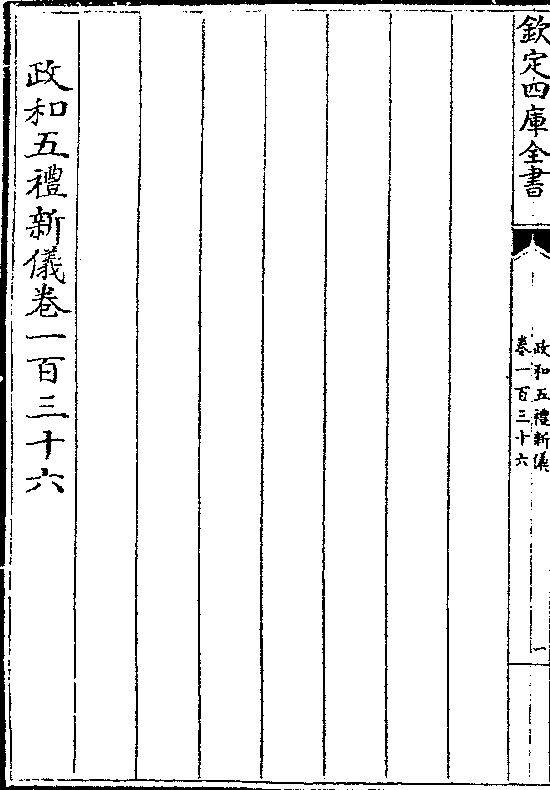 欽定四庫全書
政和五禮新儀
卷一百三十六
一
政和五禮新儀卷一百三十六